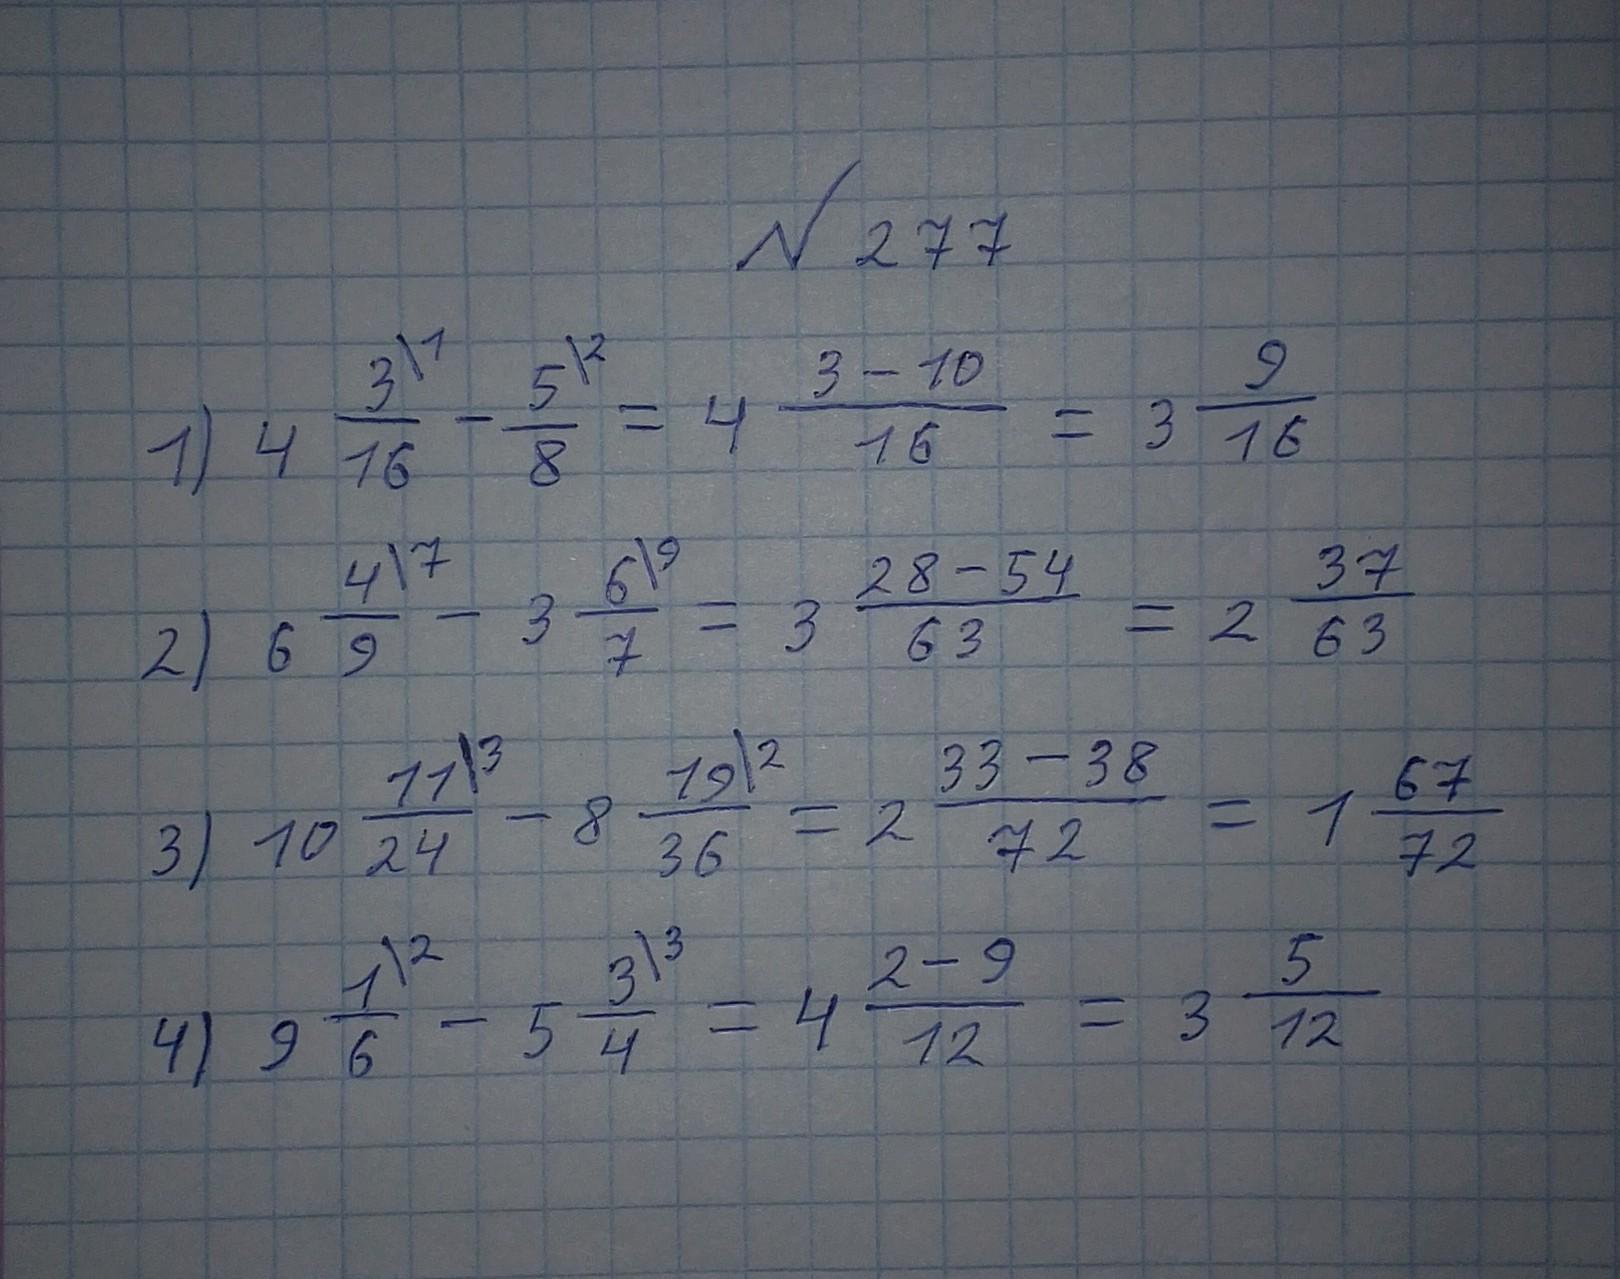 № 277
1) 4 3\1/16 - 5\2/8 = 4 3-10/16 = 3 9/16
2) 6 4\7/9 - 3 6\9/7 = 3 28-54/63 = 2 37/63
3) 10 11\3/24 - 8 19\2/36 = 2 33-38/72 = 1 67/72
4) 9 1\2/6 - 5 3\3/4 = 4 2-9/12 = 3 5/12